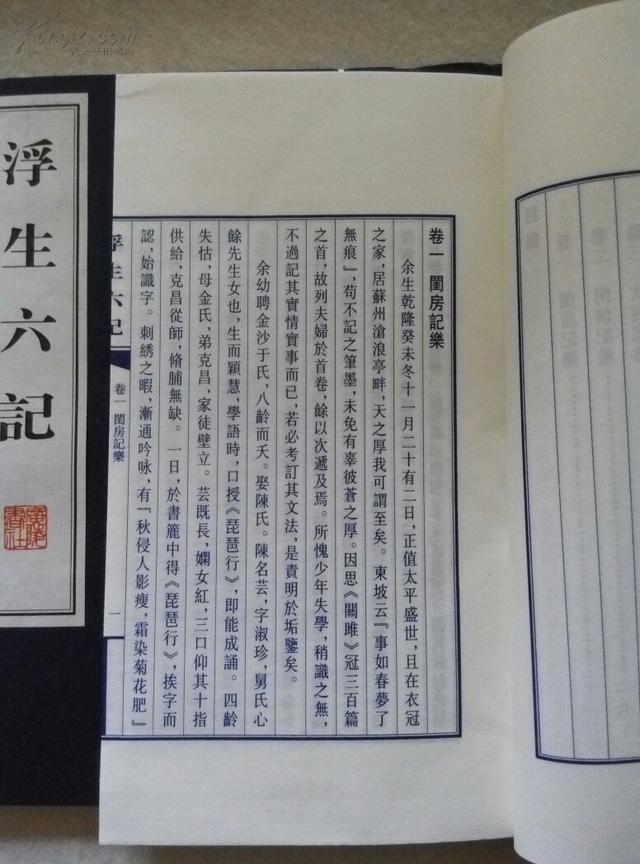 浮生六記
卷一 閨房記樂
余生乾隆癸未冬十一月二十有二日，正值太平盛世，且在衣冠
之家，居蘇州滄浪亭畔，天之厚我可謂至矣。東坡云『事如春夢了
無痕』，苟不記之筆墨，未免有辜彼蒼之厚。因思《關雎》冠三百篇
之首，故列夫婦於首卷，餘以次遞及焉。所愧少年失學，稍識之無，
不過記其實情實事而已，若必考訂其文法，是責明於垢鑒矣。
余幼聘金沙于氏，八齡而夭。娶陳氏。陳名芸，字淑珍，舅氏心
餘先生女也，生而穎慧，學語時，口授《琵琶行》，即能成誦。四齡
失怙，母金氏，弟克昌，家徒壁立。芸既長，嫻女紅，三口仰其十指
供給，克昌從師，脩脯無缺。一日，於書簏中得《琵琶行》，挨字而
認，始識字。刺綉之暇，漸通吟咏，有『秋侵人影瘦，霜染菊花肥』
浮生六記
卷一 閨房記樂
一